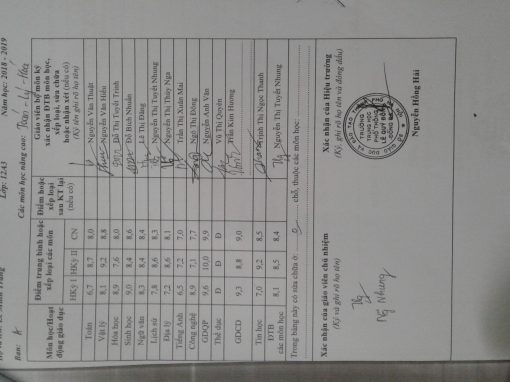 Lớp: 12A3 Năm học: 2018 - 2019
Ban: A Các môn học nâng cao: Toán - Lý - Hóa
Môn học/Hoạt động giáo dục Điểm trung bình hoặc xếp loại các môn Điểm hoặc xếp loại sau KT lại (nếu có) Giáo viên bộ môn ký xác nhận ĐTB môn học, xếp loại, sửa chữa hoặc nhận xét (nếu có) (Ký tên ghi rõ họ tên)
HKỲ I HKỲ II CN
Toán 6,7 8,7 8,0 Nguyễn Văn Thuật
Vật lý 8,1 9,2 8,8 Nguyễn Văn Hiếu
Hóa học 8,9 7,6 8,0 Đỗ Thị Tuyết Trinh
Sinh học 9,0 8,4 8,6 Đỗ Bích Nhuần
Ngữ văn 8,3 8,4 8,4 Lê Thị Đăng
Lịch sử 7,8 8,6 8,3 Nguyễn Thị Tuyết Nhung
Địa lý 7,2 8,6 8,1 Nguyễn Thị Thúy Nga
Tiếng Anh 6,5 7,2 7,0 Trần Thị Xuân Mai
Công nghệ 8,9 7,1 7,7 Ngô Thị Đông
GDQP 9,6 10,0 9,9 Nguyễn Anh Văn
Thể dục Đ Đ Đ Võ Thị Quyên
GDCD 9,3 8,8 9,0 Trần Kim Hương
Tin học 7,0 9,2 8,5 Trịnh Thị Ngọc Thanh
ĐTB các môn học 8,1 8,5 8,4 Nguyễn Thị Tuyết Nhung
Trong bảng này có sửa chữa ở: 0 chỗ, thuộc các môn học:
Xác nhận của giáo viên chủ nhiệm Xác nhận của Hiệu trưởng
(Ký và ghi rõ họ tên) (Ký, ghi rõ họ tên và đóng dấu)
TRƯỜNG
TRUNG HỌC
PHỔ THÔNG
Nhung
Nguyễn Hồng Hải